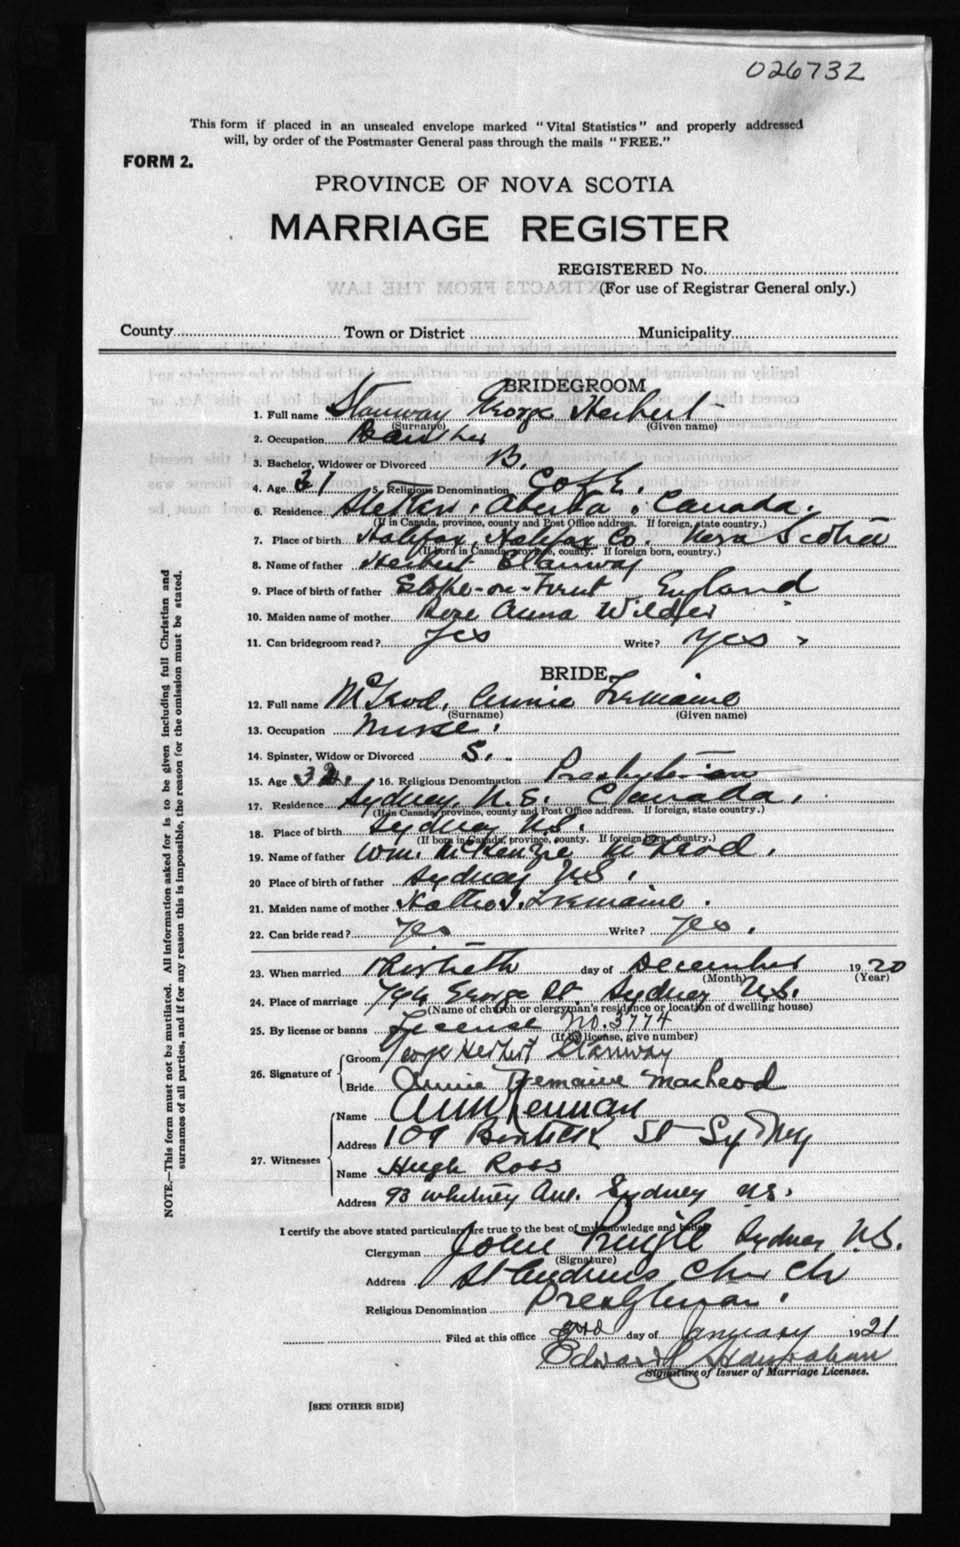 026732
This form if placed in an unsealed envelope marked "Vital Statistics" and properly addressed
will, by order of the Postmaster General pass through the mails "FREE."
FORM 2.
PROVINCE OF NOVA SCOTIA
MARRIAGE REGISTER
REGISTERED No.
(For use of Registrar General only.)
EXTRACTS FROM THE LAW
County Town or District Municipality
BRIDEGROOM
1. Full name Stanway George Herbert
(Surname) (Given name)
2. Occupation
3. Bachelor, Widower or Divorced B.
4. Age 31 5. Religious Denomination C of E.
6. Residence Stettler, Alberta, Canada.
(If in Canada, province, county and Post Office address. If foreign, state country.)
7. Place of birth Halifax, Halifax Co. Nova Scotia
(If born in Canada, province, county. If foreign born, country.)
8. Name of father Herbert Stanway
9. Place of birth of father Stoke-on-Trent England
10. Maiden name of mother Rose Anna
11. Can bridegroom read? Yes Write? Yes
BRIDE
12. Full name McLeod, Annie Tremaine
(Surname) (Given name)
13. Occupation Nurse.
14. Spinster, Widow or Divorced S.
15. Age 32. 16. Religious Denomination Presbyterian
17. Residence Sydney, N.S. Canada.
(If in Canada, province, county and Post Office address. If foreign, state country.)
18. Place of birth Sydney N.S.
(If born in Canada, province, county. If foreign born, country.)
19. Name of father Wm. McKenzie McLeod.
20 Place of birth of father Sydney N.S.
21. Maiden name of mother Tremaine.
22. Can bride read? Yes Write? Yes.
23. When married Thirtieth day of December 1920
(Month) (Year)
24. Place of marriage George St. Sydney N.S.
(Name of church or clergyman's residence or location of dwelling house)
25. By license or banns License No. 3774
(If by license, give number)
26. Signature of Groom George Herbert Stanway
Bride Annie Tremaine MacLeod
27. Witnesses Name
Address 109 Bentick St Sydney
Name Hugh Ross
Address 93 Whitney Ave. Sydney N.S.
I certify the above stated particulars are true to the best of my knowledge and belief
Clergyman John Pringle Sydney N.S.
(Signature)
Address St Andrews Church
Religious Denomination Presbyterian.
Filed at this office 3rd day of January 1921
Edward
Signature of Issuer of Marriage Licenses.
[SEE OTHER SIDE]
NOTE.—This form must not be mutilated. All information asked for is to be given including full Christian and
surnames of all parties, and if for any reason this is impossible, the reason for the omission must be stated.